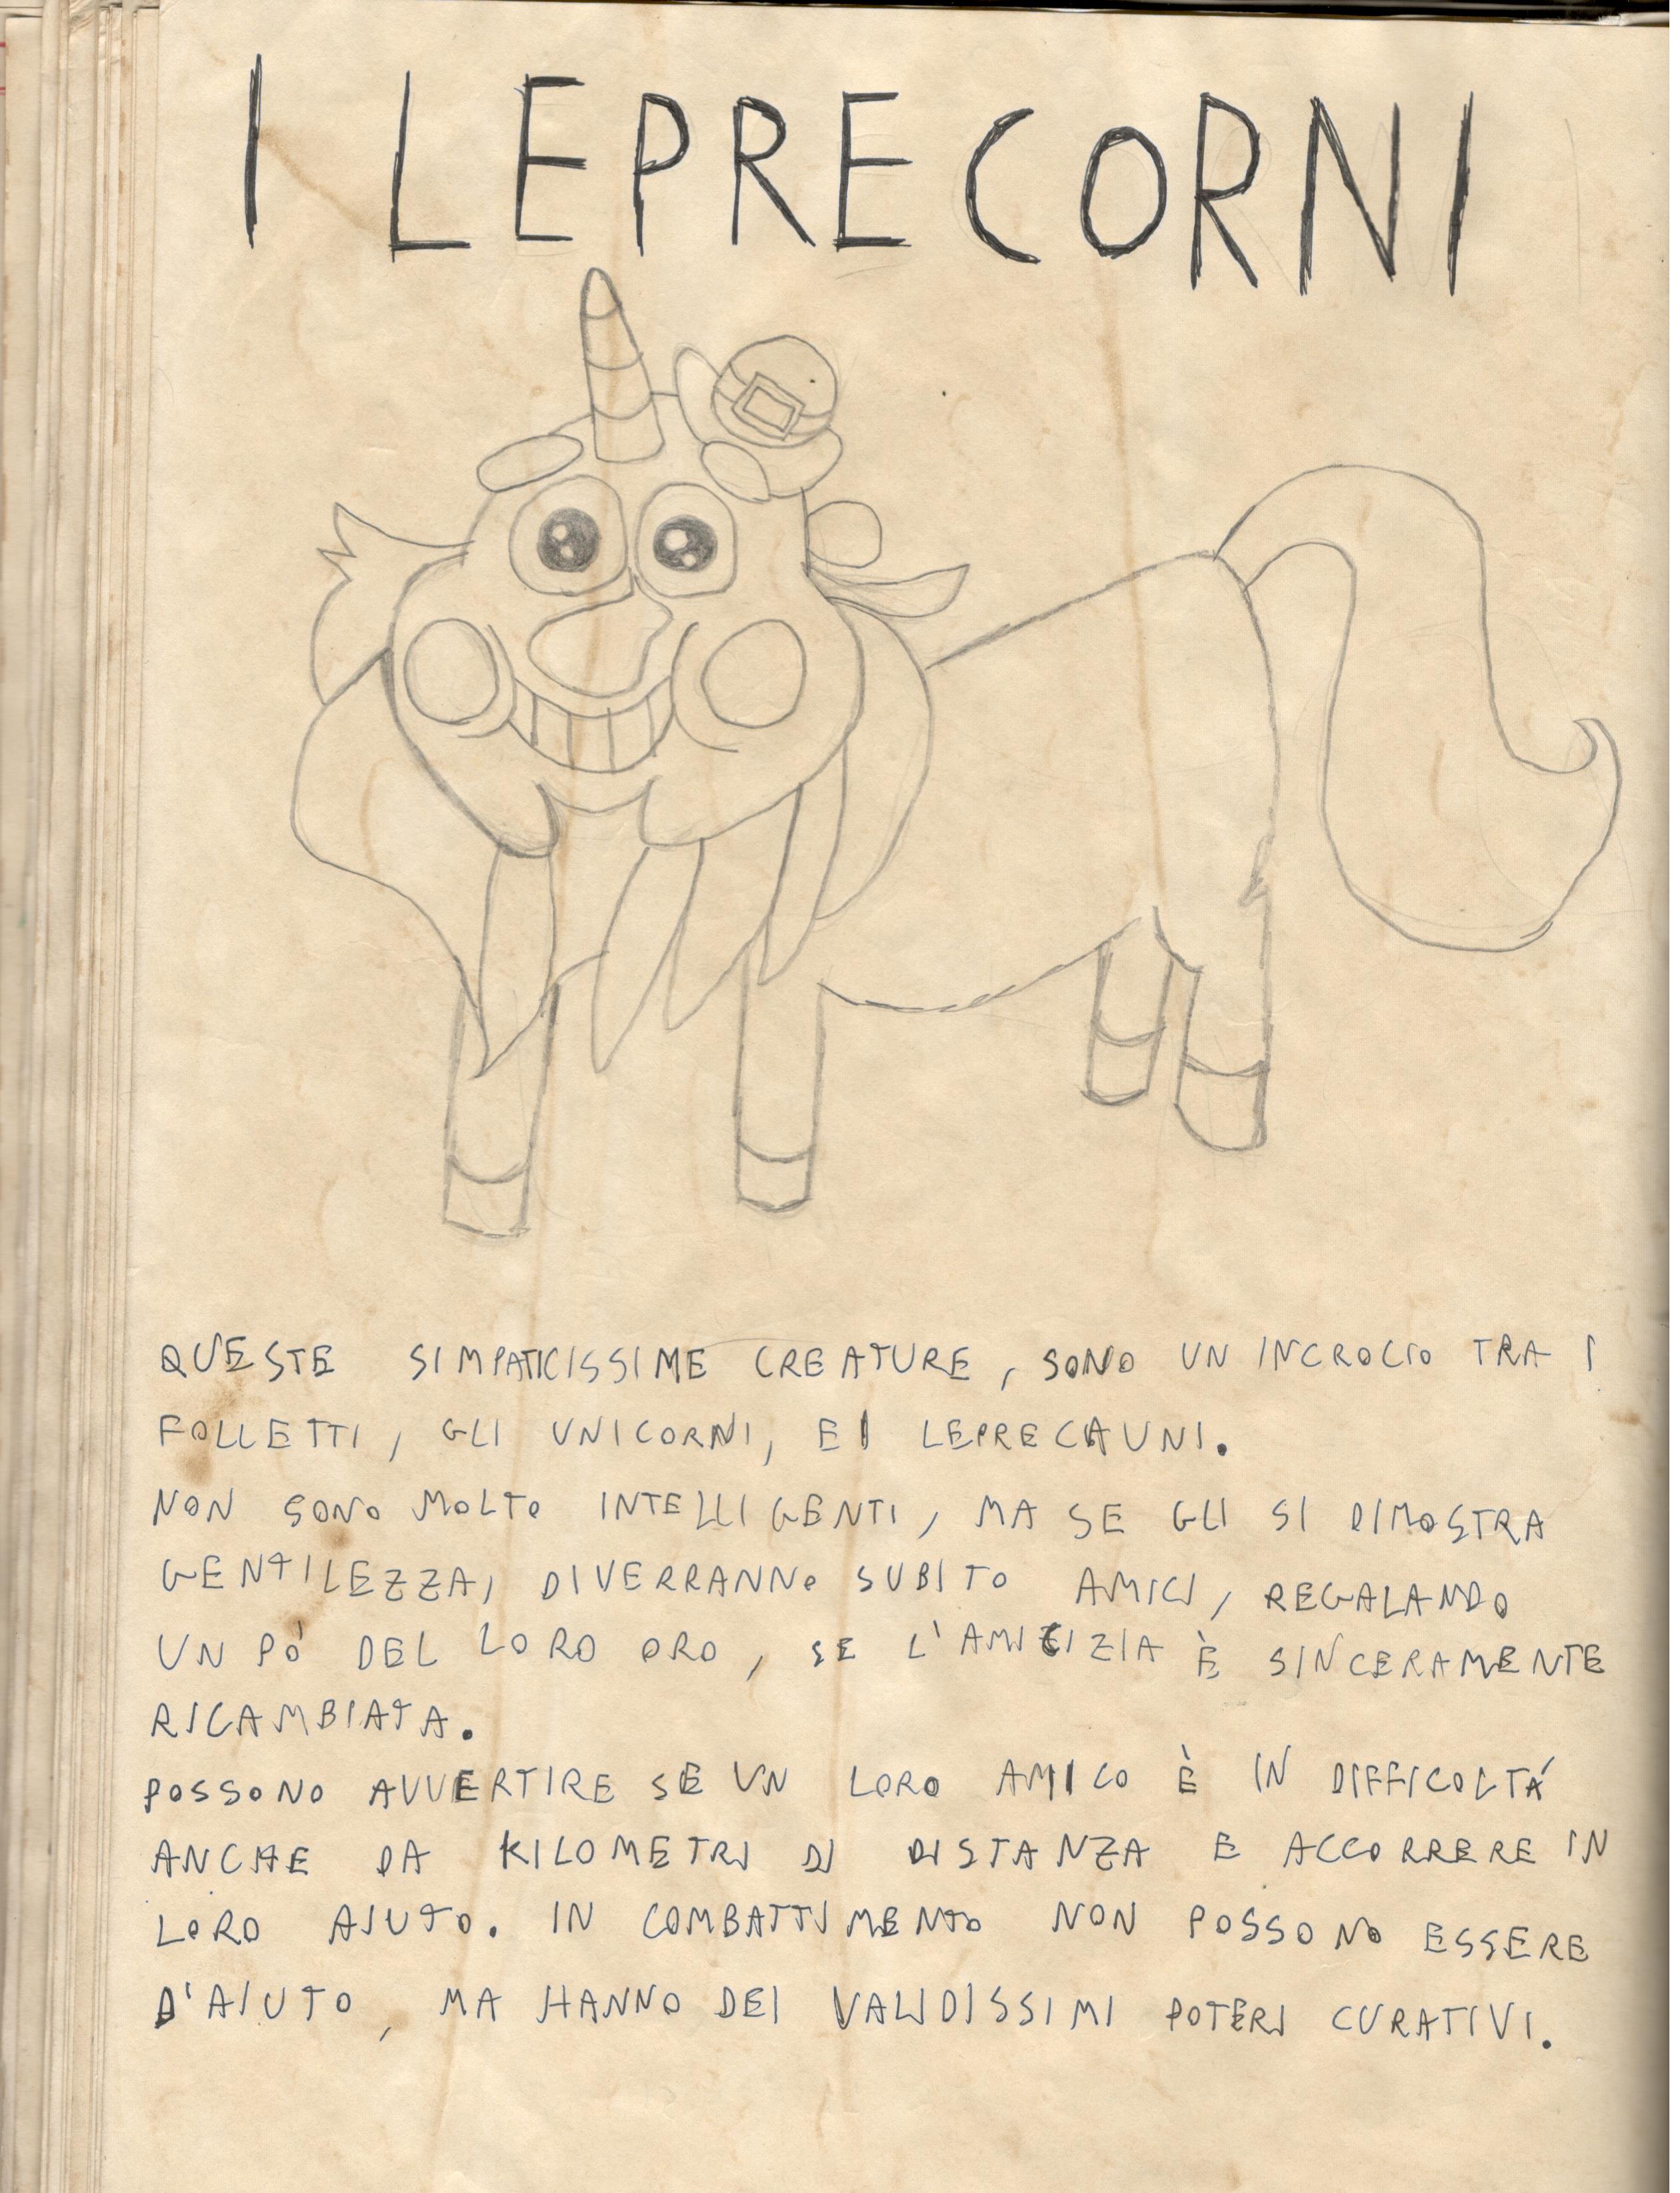 I LEPRECORNI
QUESTE SIMPATICISSIME CREATURE, SONO UN INCROCIO TRA I
FOLLETTI, GLI UNICORNI, E I LEPRECAUNI.
NON SONO MOLTO INTELLIGENTI, MA SE GLI SI DIMOSTRA
GENTILEZZA, DIVERRANNO SUBITO AMICI, REGALANDO
UN PÒ DEL LORO ORO, SE L'AMICIZIA È SINCERAMENTE
RICAMBIATA.
POSSONO AVVERTIRE SE UN LORO AMICO È IN DIFFICOLTÁ
ANCHE DA KILOMETRI DI DISTANZA E ACCORRERE IN
LORO AIUTO. IN COMBATTIMENTO NON POSSONO ESSERE
D'AIUTO, MA HANNO DEI VALIDISSIMI POTERI CURATIVI.